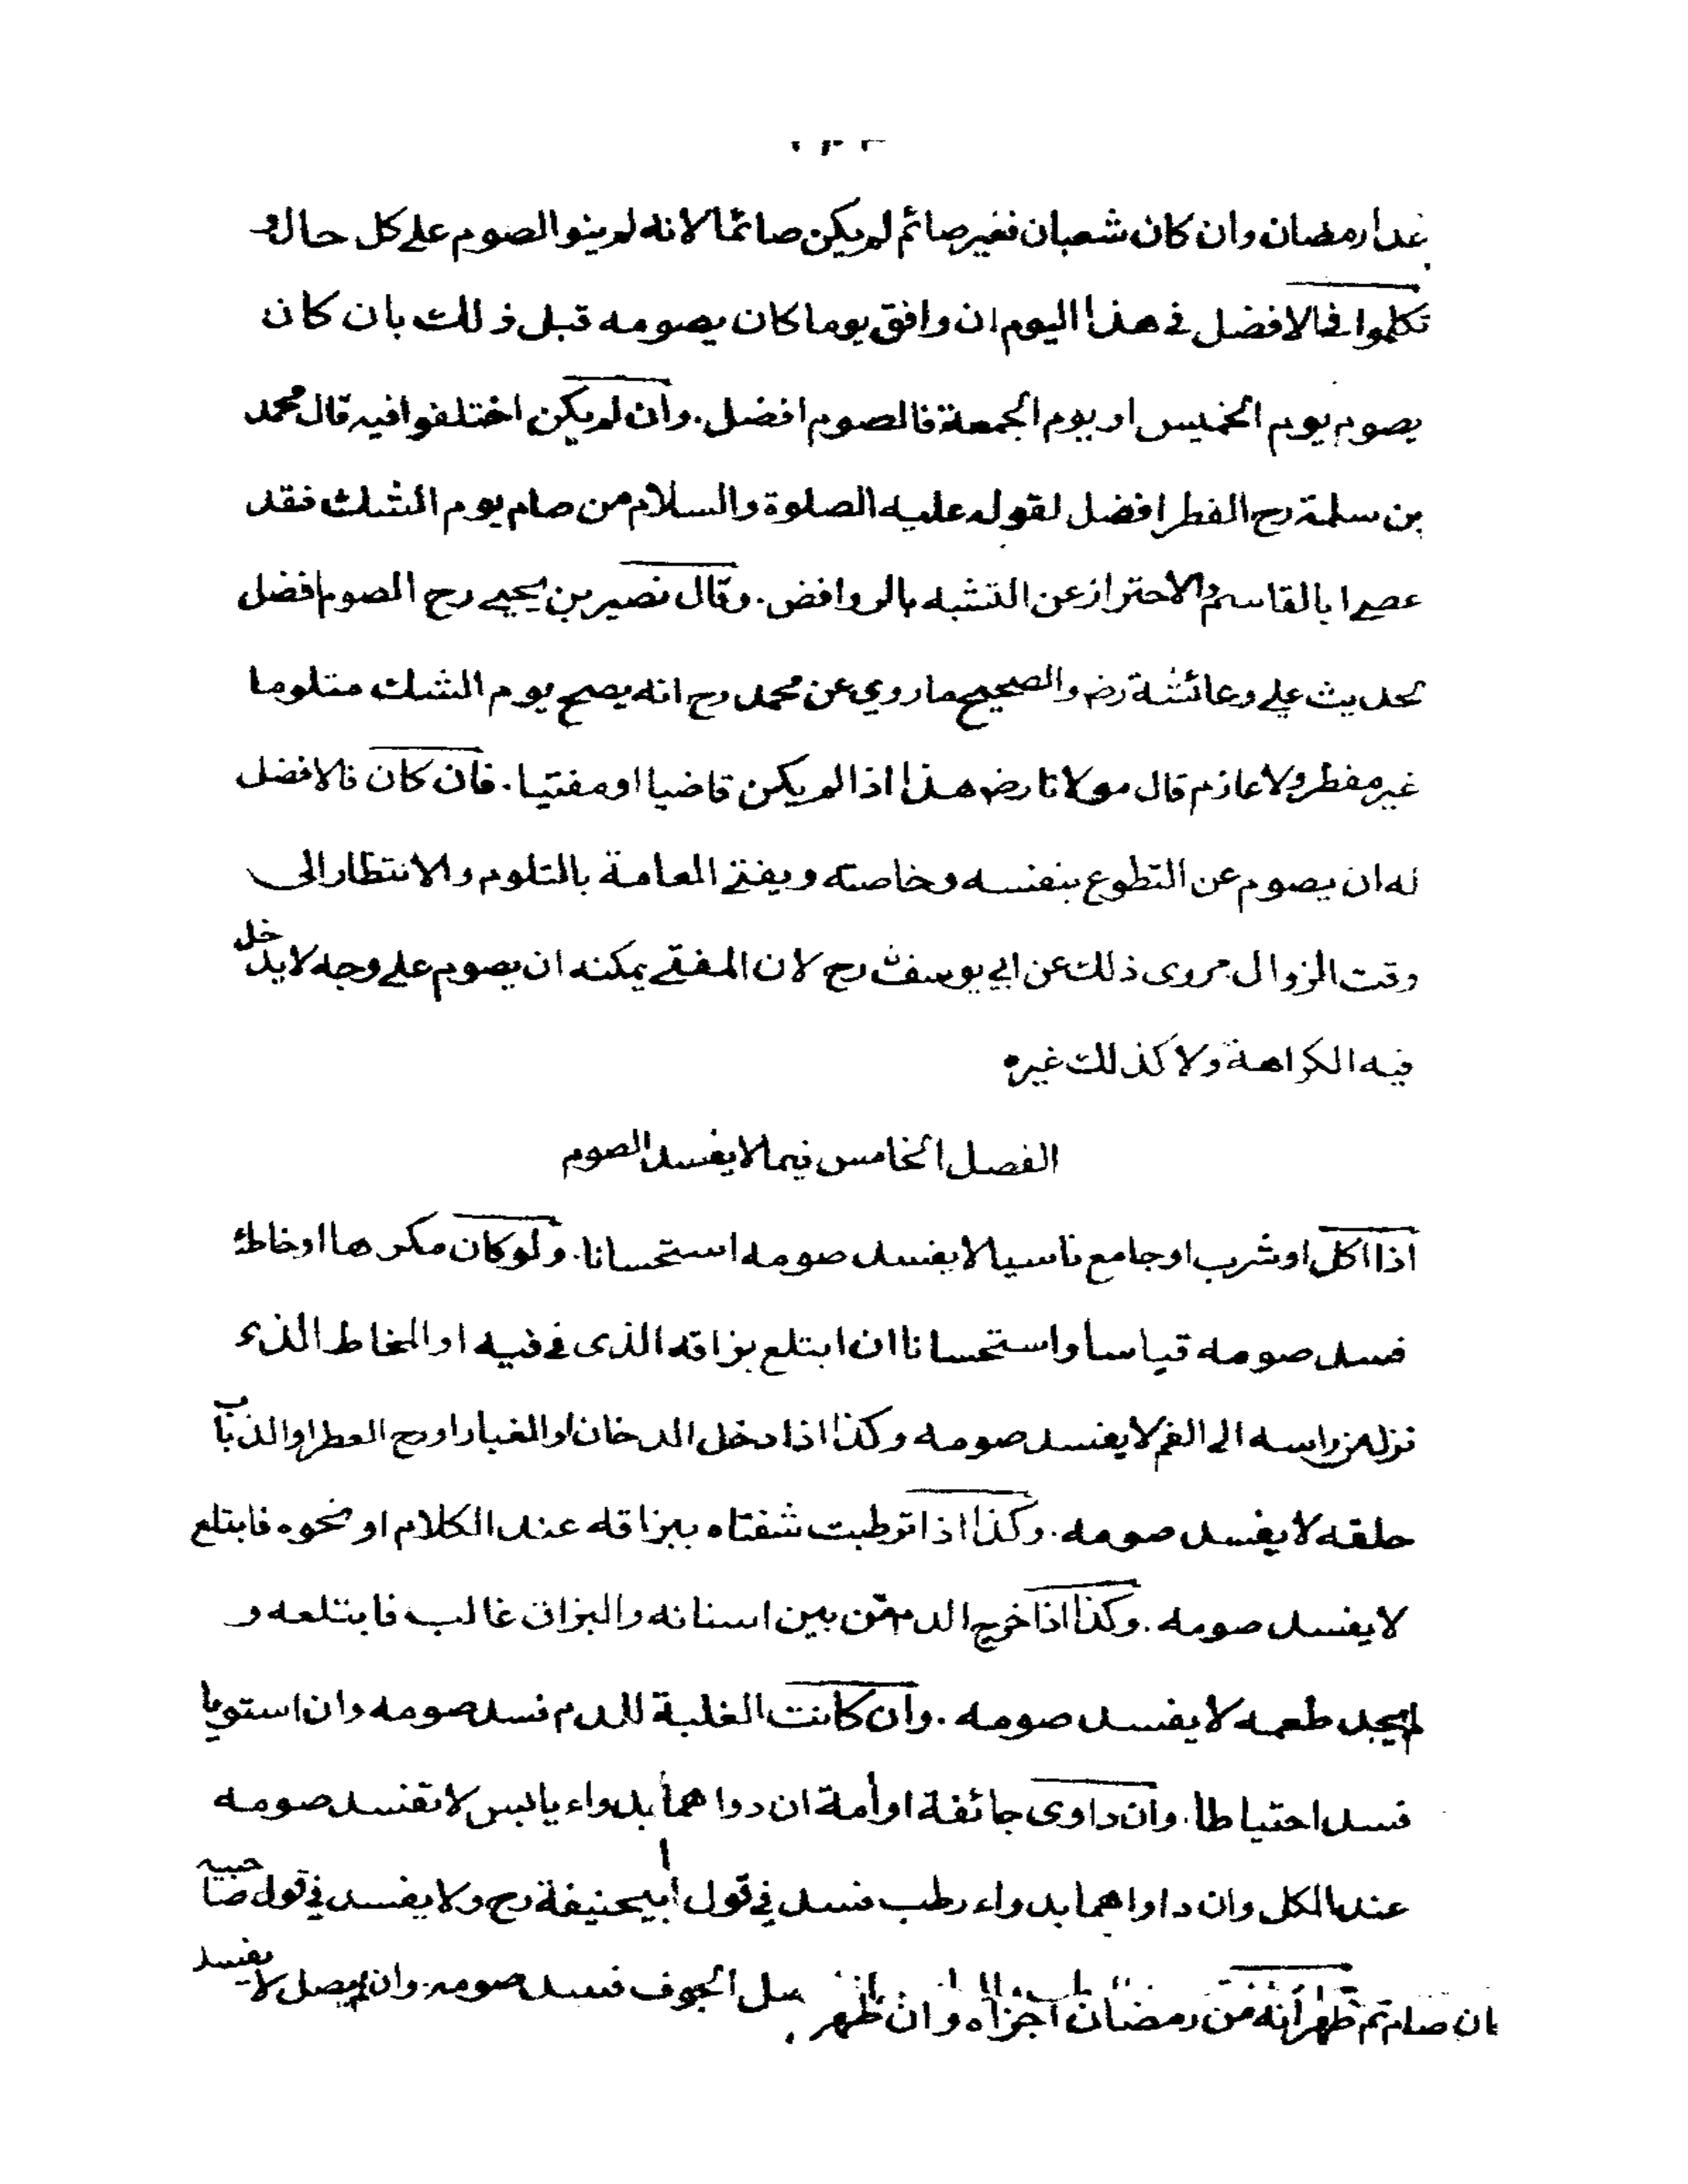 غدا رمضان وان كان شعبان فغير صائم لم يكن صائما لانه لم ينو الصوم على كل حال و
تكلموا في الافضل في هذا اليوم ان وافق يوما كان يصومه قبل ذلك بان كان
يصوم يوم الخميس او يوم الجمعة فالصوم افضل. وان لم يكن اختلفوا فيه قال محمد
بن سلمة رح الفطر افضل لقوله عليه الصلوة والسلام من صام يوم الشك فقد
عصى ابا القاسم والاحتراز عن التشبه بالروافض. وقال نصير بن يحيى رح الصوم افضل
لحديث علي وعائشة رض والصحيح ما روي عن محمد رح انه يصبح يوم الشك متلوما
غير مفطر ولا عازم قال مولانا رض هذا اذا لم يكن قاضيا او مفتيا. فان كان فالافضل
له ان يصوم عن التطوع بنفسه وخاصته ويفتي العامة بالتلوم والانتظار الى
وقت الزوال مروى ذلك عن ابي يوسف رح لان المفتي يمكنه ان يصوم على وجه لا يدخل
فيه الكراهة ولا كذلك غيره
الفصل الخامس فيما لا يفسد الصوم
اذا اكل او شرب او جامع ناسيا لا يفسد صومه استحسانا. ولو كان مكرها او خاطئ
فسد صومه قياسا واستحسانا ان ابتلع بزاقه الذى في فيه او المخاط الذى
نزل من راسه الى الفم لا يفسد صومه وكذا اذا دخل الدخان او الغبار او ريح العطر او الذباب
حلقه لا يفسد صومه. وكذا اذا ترطبت شفتاه ببزاقه عند الكلام او نحوه فابتلع
لا يفسد صومه. وكذا اذا خرج الدم من بين اسنانه والبزاق غالب فابتلعه و
لم يجد طعمه لا يفسد صومه. وان كانت الغلبة للدم فسد صومه وان استويا
فسد احتياطا. وان داوى جائفة او أمة ان دواهما بدواء يابس لا تفسد صومه
عند الكل وان داواهما بدواء رطب فسد في قول ابيحنيفة رح ولا يفسد في قول صاحبيه
صل الجوف فسد صومه. وان لم يصل لا يفسد
ان صام تم ظهر انه من رمضان اجزاه وان ظهر